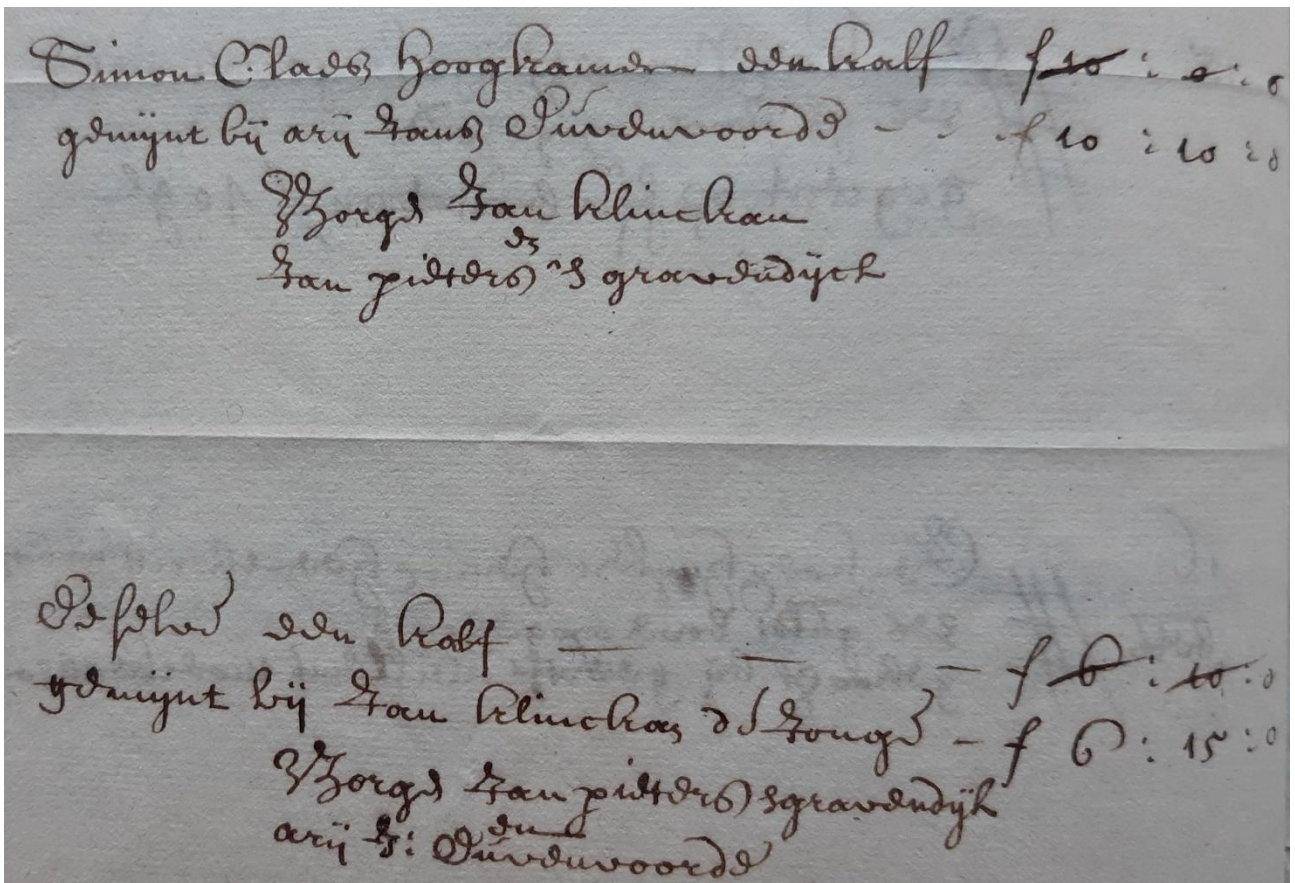 Simon Claesz Hoogkamer een kalf f 10 : 0 : 0
gemijnt bij arij Jansz Duvenvoorde - - f 10 : 10 : 0
Borge Jan klinckan
en
Jan pieters 's gravendijck
deselve een kalf — — — f 6 : 10 : 0
gemijnt bij Jan klinckan de Jonge — f 6 : 15 : 0
Borge Jan pieters sgravendijk
en
arij J: Duvenvoorde